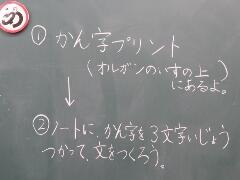 め
① かん字プリント
(オルガンのいすの上
にあるよ。
↓
② ノートに、かん字を3文字いじょう
つかって、文をつくろう。